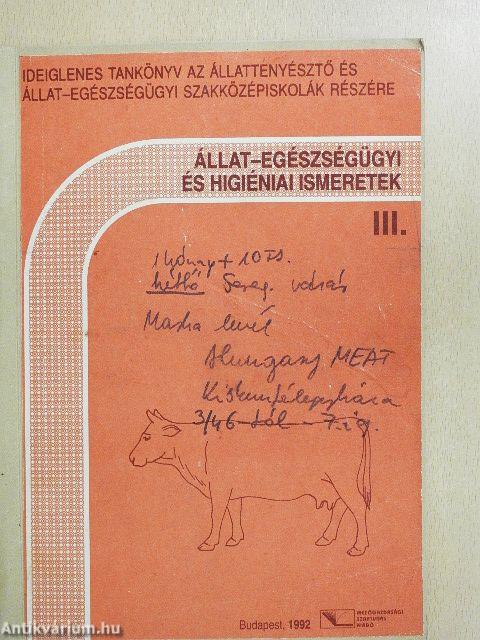 IDEIGLENES TANKÖNYV AZ ÁLLATTENYÉSZTŐ ÉS
ÁLLAT-EGÉSZSÉGÜGYI SZAKKÖZÉPISKOLÁK RÉSZÉRE
ÁLLAT-EGÉSZSÉGÜGYI
ÉS HIGIÉNIAI ISMERETEK
III.
1 könyv + 10
hétfő
Marha levél
Hungary MEAT
Kiskunfélegyháza
3/46-tól - 7.ig.
Budapest, 1992
MEZŐGAZDASÁGI
SZAKTUDÁS
KIADÓ
Antikvarium.hu